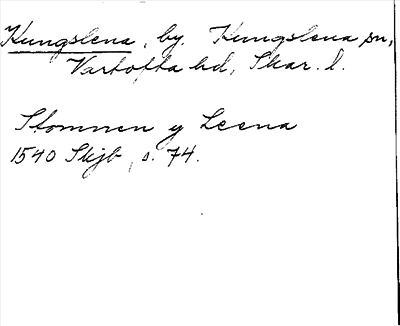 Kungslena, by. Kungslena sn,
Vartofta hd, Skar. l.
Stommen y Leena
1540 Skjb, s. 74.